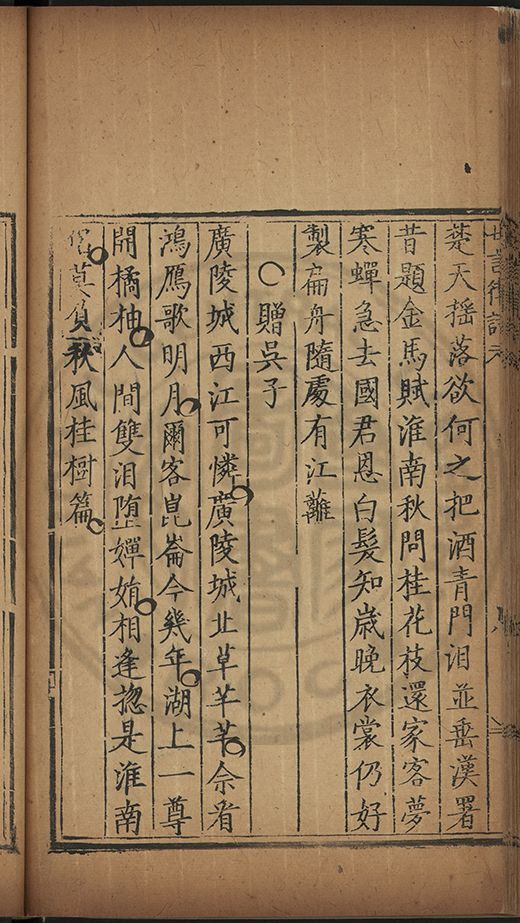 楚天揺落欲何之把酒青門泪並垂漢署
昔題金馬賦淮南秋問桂花枝還家客夢
寒蟬急去國君恩白髮知歳晚衣裳仍好
製扁舟隨處有江蘺
〇贈吳子
廣陵城西江可憐廣陵城北草芊芊余看
鴻鴈歌明月爾客崑崙今幾年湖上一尊
開橘柚人間雙泪墮嬋娟相逢揔是淮南
莫負秋風桂樹篇